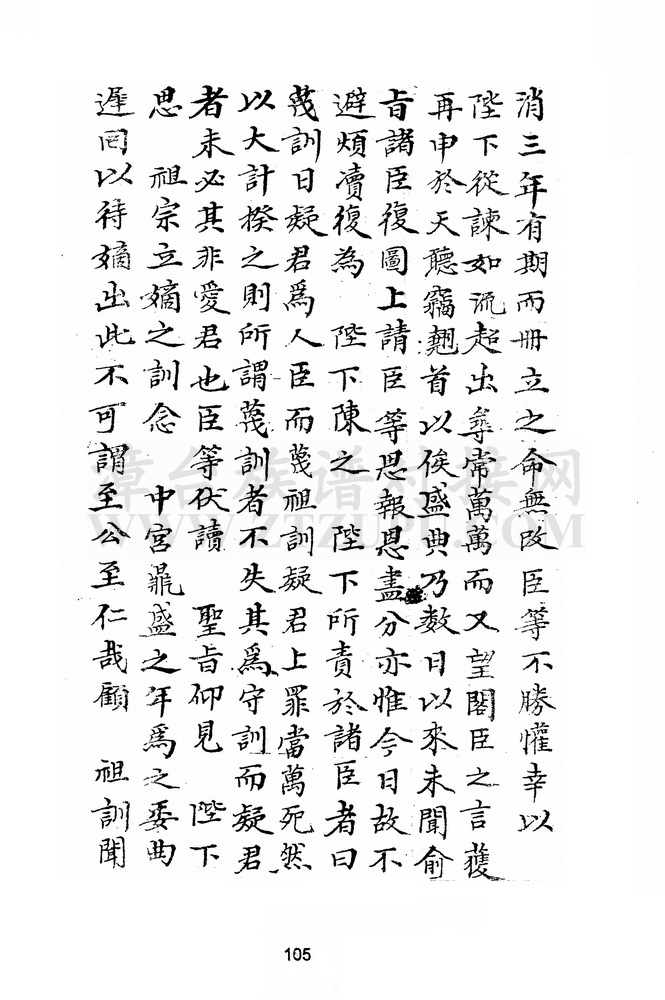 消三年有期而冊立之命無改臣等不勝懽幸以
陛下從諫如流超出尋常萬萬而又望閣臣之言獲
再申於天聽竊翹首以俟盛典乃數日以來未聞俞
旨諸臣復圖上請臣等思報恩盡分亦惟今日故不
避煩瀆復為 陛下陳之 陛下所責於諸臣者曰
蔑訓曰疑君爲人臣而蔑祖訓疑君上罪當萬死然
以大計揆之則所謂蔑訓者不失其爲守訓而疑君
者未必其非愛君也臣等伏讀 聖旨仰見 陛下
思 祖宗立嫡之訓念 中宮鼎盛之年爲之委曲
遲回以待嫡出此不可謂至公至仁哉顧 祖訓聞
章台族谱对接网
WWW.ZTZUPU.COM
105